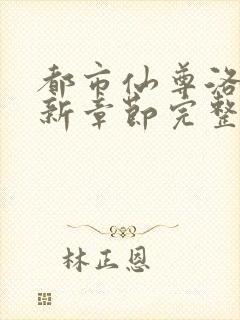 都市仙尊洛
新章节完整
林正恩